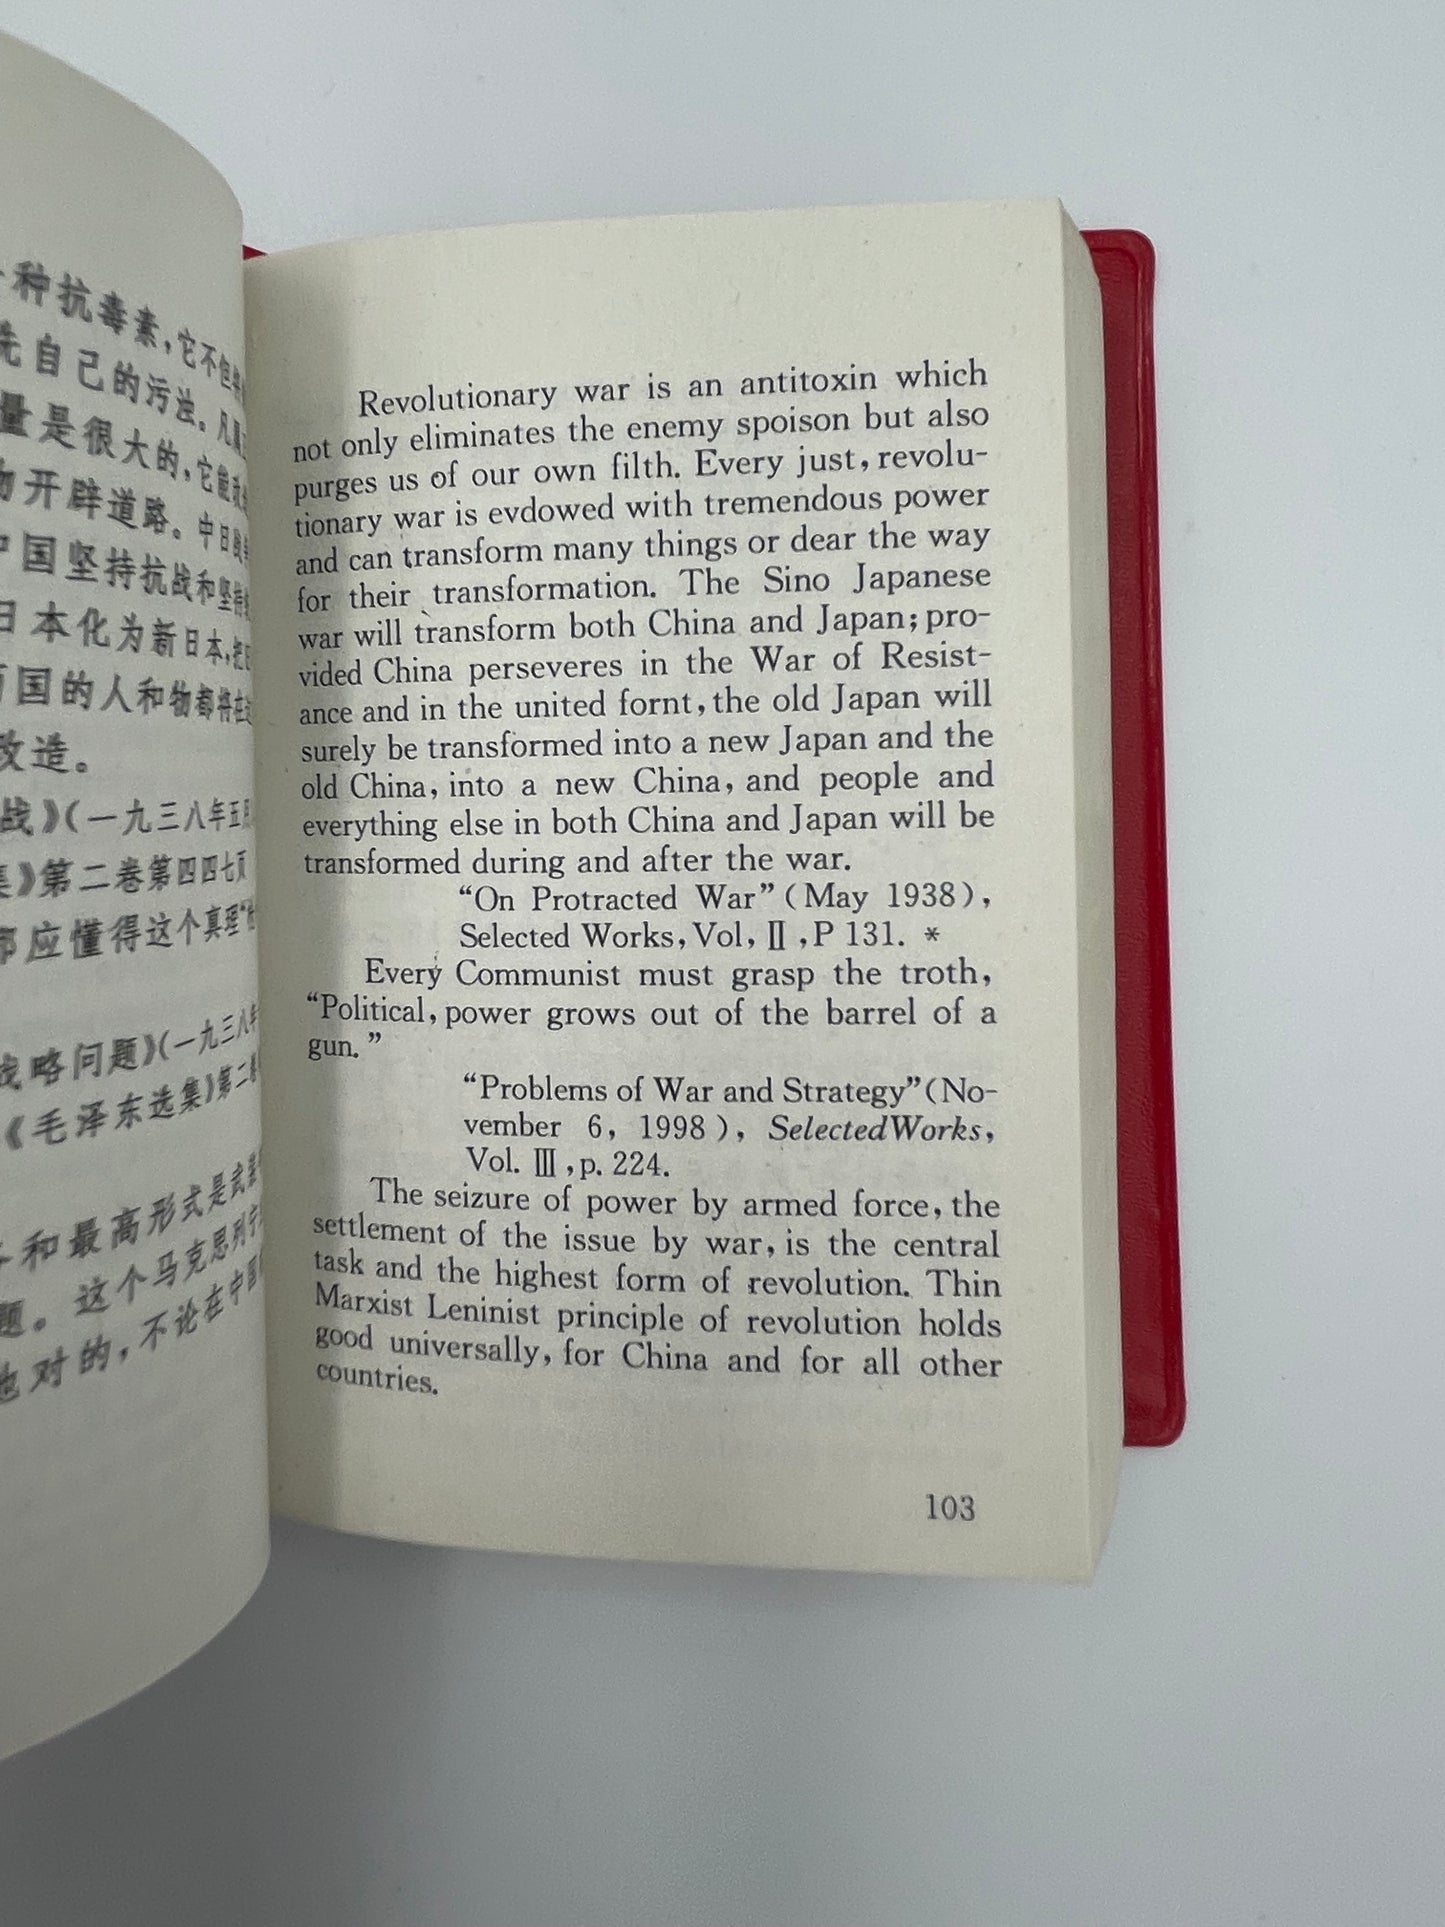 种抗毒素，它不但
先自己的污浊。凡
量是很大的，它能
物开辟道路。中日战
中国坚持抗战和坚持
日本化为新日本，把
国的人和物都将在
改造。
战》（一九三八年五月
集》第二卷第四四七页
都应懂得这个真理
战略问题》（一九三八年
《毛泽东选集》第二卷
和最高形式是武装
题。这个马克思列宁
地对的，不论在中国
Revolutionary war is an antitoxin which
not only eliminates the enemy spoison but also
purges us of our own filth. Every just, revolu-
tionary war is evdowed with tremendous power
and can transform many things or dear the way
for their transformation. The Sino Japanese
war will transform both China and Japan; pro-
vided China perseveres in the War of Resist-
ance and in the united fornt, the old Japan will
surely be transformed into a new Japan and the
old China, into a new China, and people and
everything else in both China and Japan will be
transformed during and after the war.
“On Protracted War”(May 1938),
Selected Works, Vol, Ⅱ, P 131. *
Every Communist must grasp the troth,
“Political, power grows out of the barrel of a
gun.”
“Problems of War and Strategy”(No-
vember 6, 1998), SelectedWorks,
Vol. Ⅲ, p. 224.
The seizure of power by armed force, the
settlement of the issue by war, is the central
task and the highest form of revolution. Thin
Marxist Leninist principle of revolution holds
good universally, for China and for all other
countries.
103